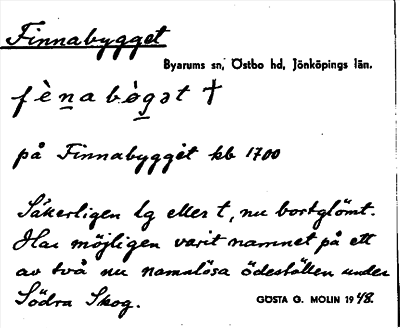 Finnabygget
Byarums sn, Östbo hd, Jönköpings län.
fènabø̀gət †
på Finnabygget kb 1700
Säkerligen lg eller t, nu bortglömt.
Har möjligen varit namnet på ett
av två nu namnlösa ödeställen under
Södra Skog.
GÖSTA G. MOLIN 1948.